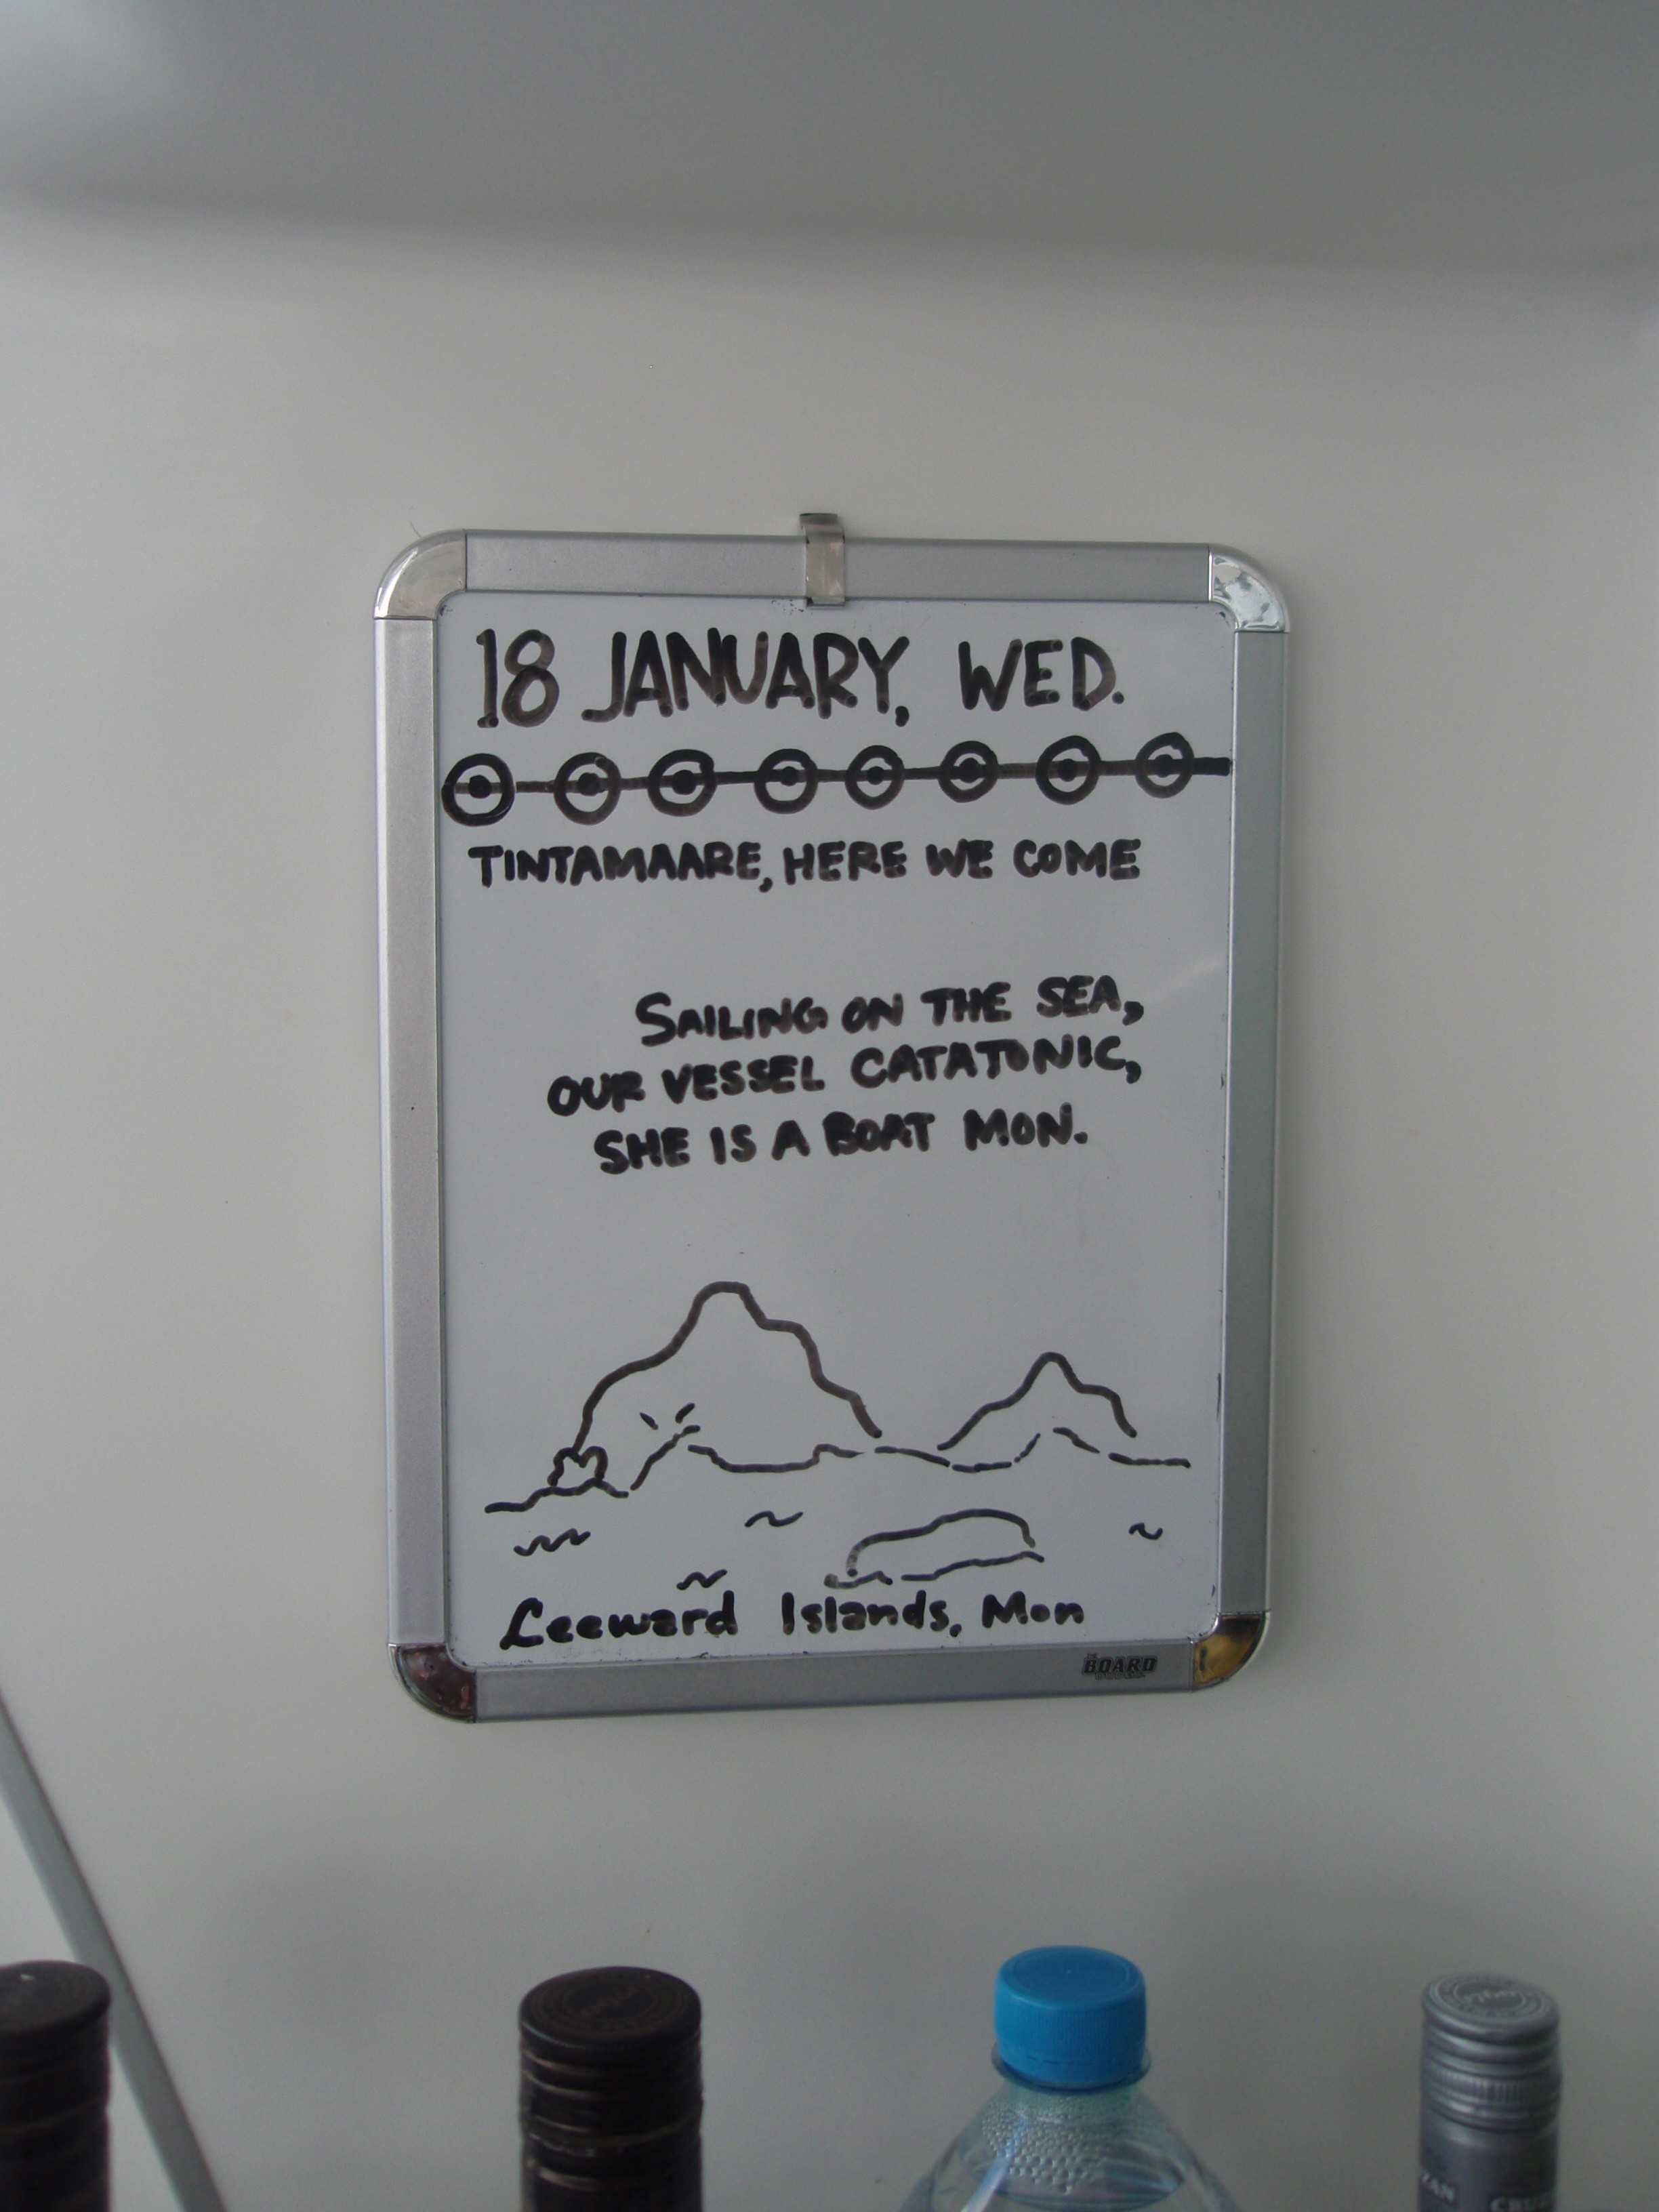 18 JANUARY, WED.
TINTAMAARE, HERE WE COME
SAILING ON THE SEA,
OUR VESSEL CATATONIC,
SHE IS A BOAT MON.
Leeward Islands, Mon
BOARD